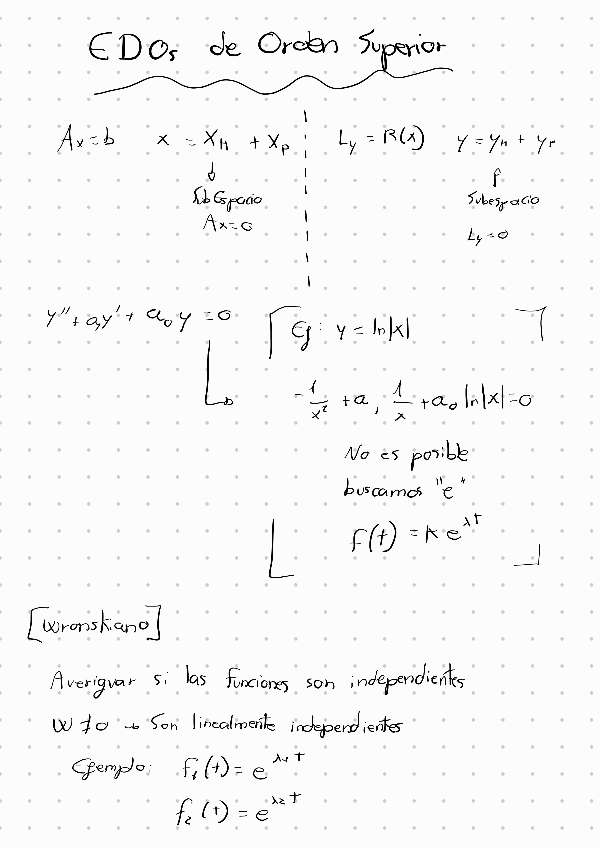 EDOs de Orden Superior
Ax=b x = x_H + x_p
SubEspacio
Ax=0
Ly = R(x) y = y_H + y_p
Subespacio
Ly=0
y'' + a₁y' + a₀y = 0
Ej: y = ln|x|
-1/x² + a₁ 1/x + a₀ ln|x| = 0
No es posible
buscamos "e"
f(t) = K e^{λt}
[Wronskiano]
Averiguar si las funciones son independientes
W ≠ 0 → Son linealmente independientes
Ejemplo: f₁(t) = e^{λ₁t}
f₂(t) = e^{λ₂t}